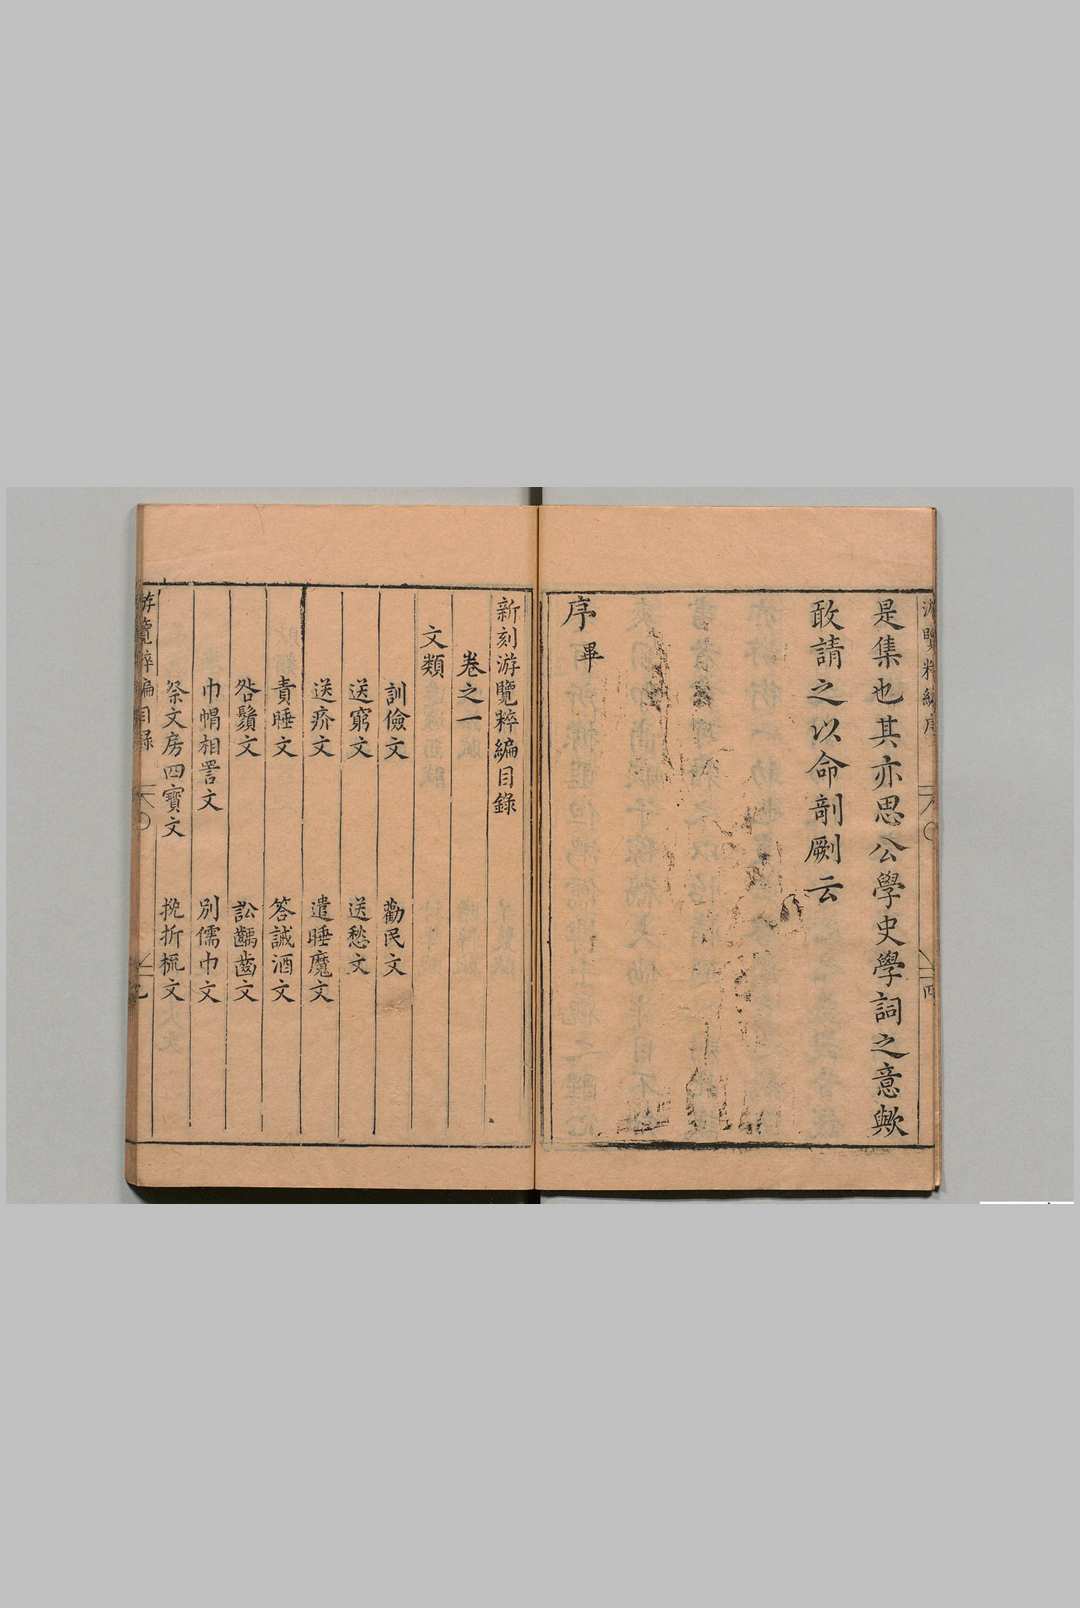 是集也其亦思公學史學詞之意歟
敢請之以命剞劂云
序畢
新刻游覽粹編目錄
卷之一
文類
訓儉文 勸民文
送窮文 送愁文
送疥文 遣睡魔文
責睡文 答誡酒文
咎鬚文 訟齲齒文
巾帽相詈文 別儒巾文
祭文房四寶文 挽折梳文